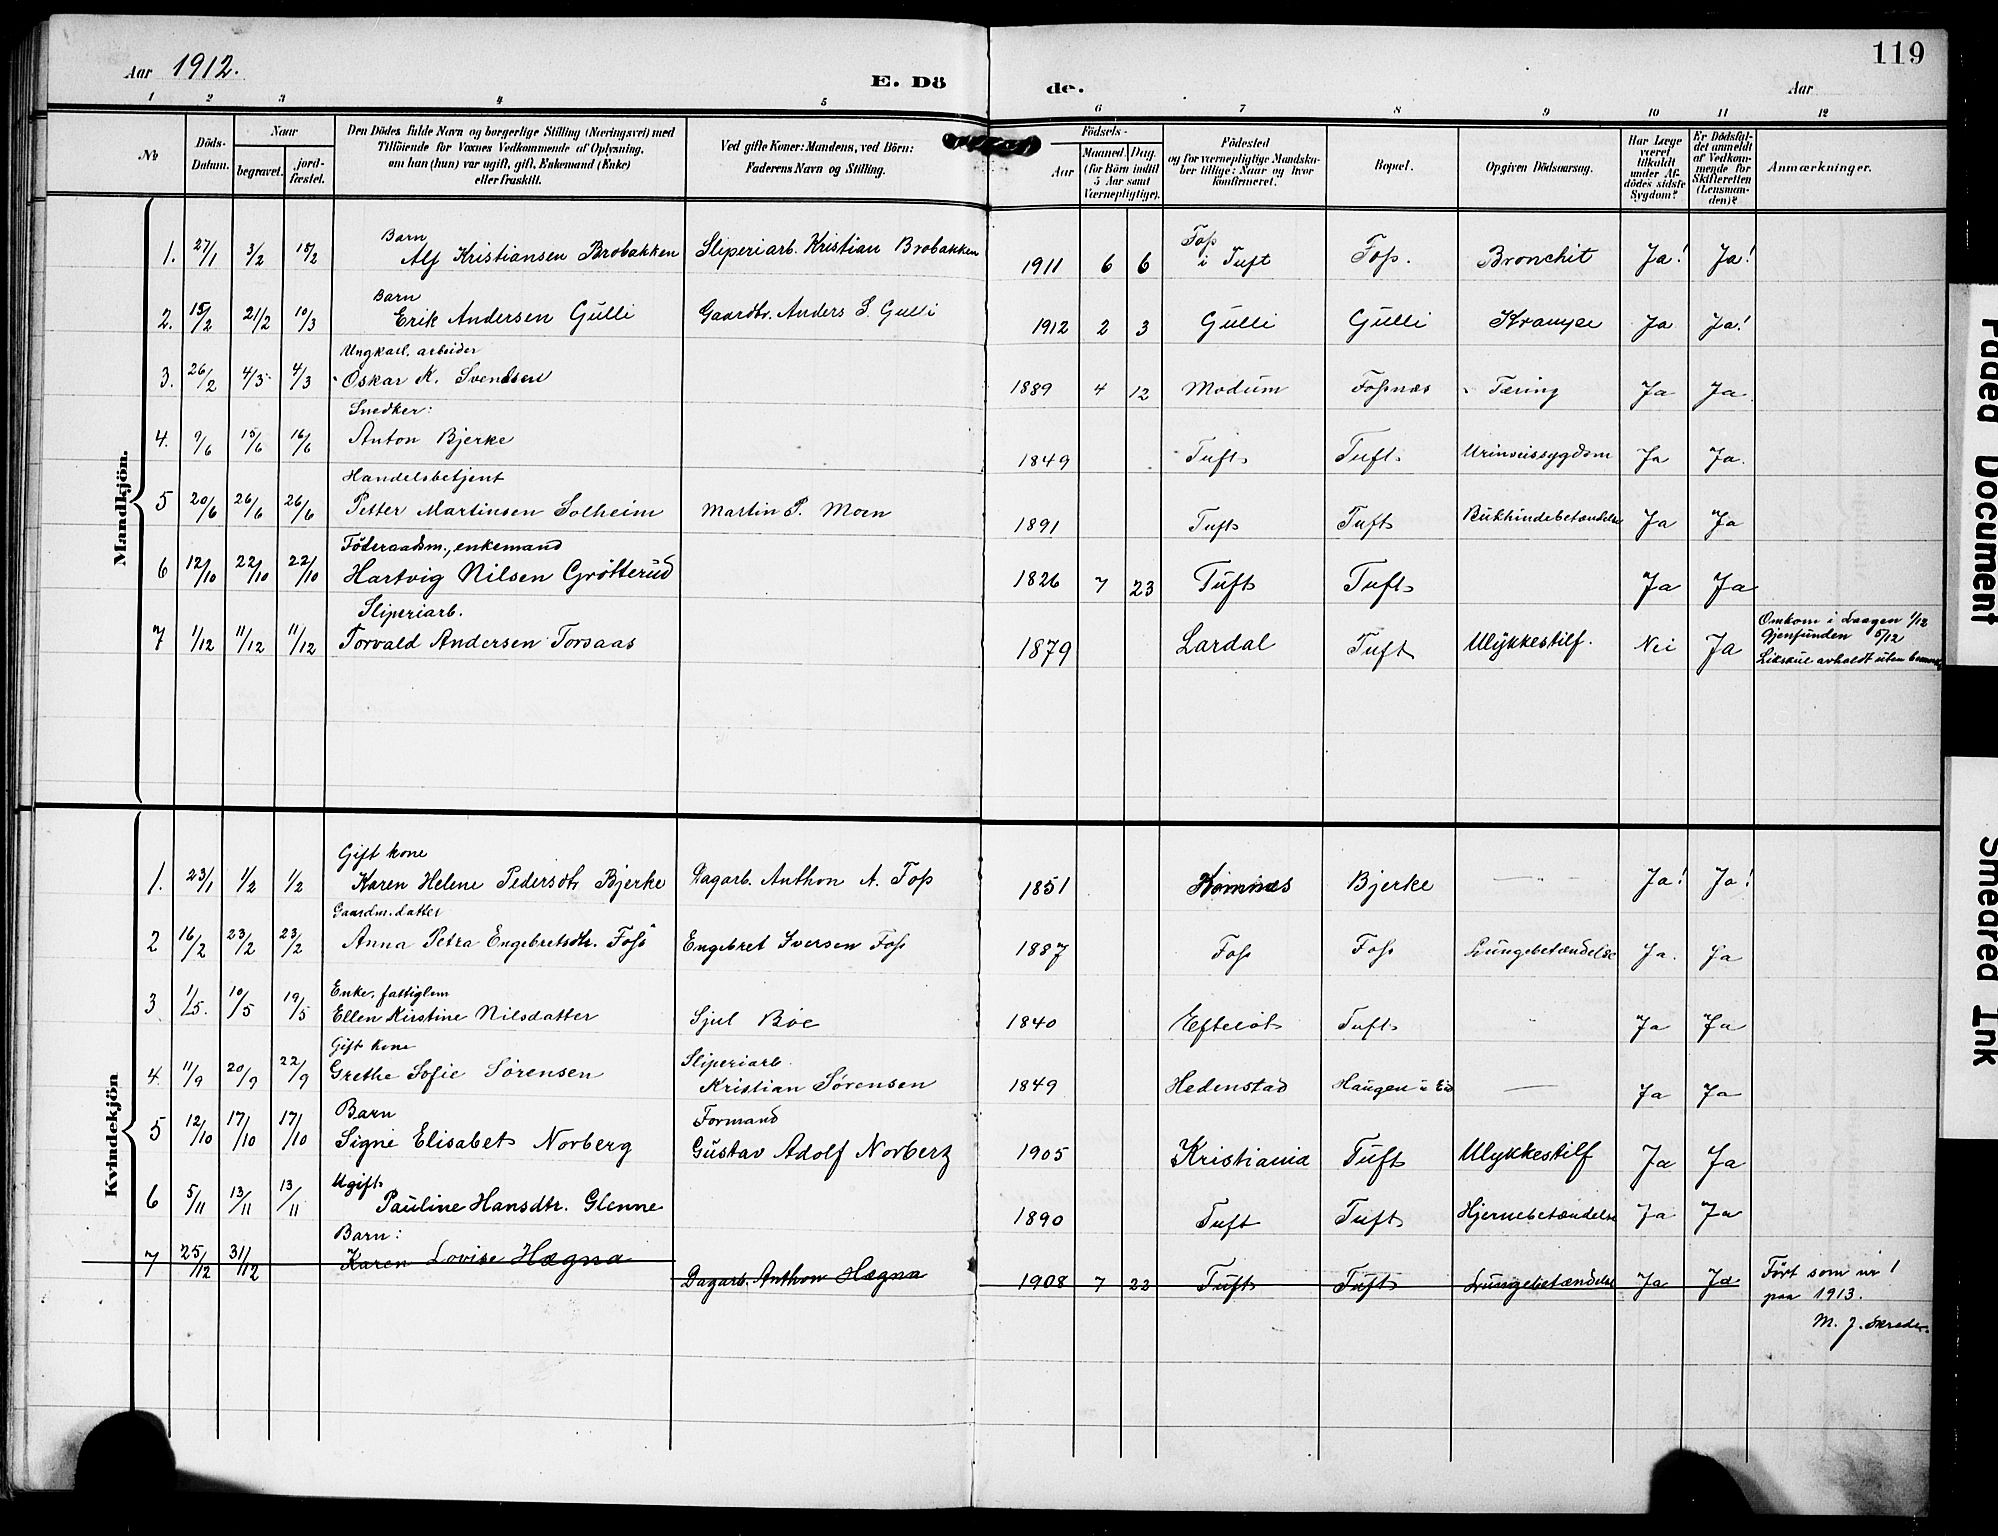 119
Aar 1912.
E. Dö
de.
Aar
1 2 3 4 5 6 7 8 9 10 11 12
No
Döds-
Datum.
Naar
begravet.
jord-
fæstet.
Den Dödes fulde Navn og borgerlige Stilling (Næringsvei) med
Tilföiende for Voxnes Vedkommende af Oplysning,
om han (hun) var ugift, gift, Enkemand (Enke)
eller fraskilt.
Ved gifte Koner: Mandens, ved Börn:
Faderens Navn og Stilling.
Födsels-
Aar
Maaned. Dag.
(for Börn indtil
5 Aar samt
Værnepligtige).
Födested
og for værnepligtige Mandska-
ber tillige: Naar og hvor
konfirmeret.
Bopæl.
Opgiven Dödsaarsag.
Har Læge
været
tilkaldt
under Af-
dödes sidste
Sygdom?
Er Dödsfal-
det anmeldt
af Vedkom-
mende for
Skifteretten
(Lensman-
den)?
Anmærkninger.
Mandkjön.
Barn
1. 27/1 3/2 18/2 Alf Kristiansen Brobakken Sliperiarb. Kristian Brobakken 1911 6 6 Foss i Tuft Foss. Bronchit Ja! Ja!
Barn
2. 15/2 21/2 10/3 Erik Andersen Gulli Gaardbr. Anders S. Gulli 1912 2 3 Gulli Gulli Krampe Ja Ja!
Ungkarl, arbeider
3. 26/2 4/3 4/3 Oskar K. Svendsen 1889 4 12 Modum Fossnæs Tæring Ja Ja.
Snedker:
4. 9/6 15/6 16/6 Anton Bjerke 1849 Tuft Tuft Ja Ja.
Handelsbetjent
5 20/6 26/6 26/6 Petter Martinsen Solheim Martin P. Moen 1891 Tuft Tuft Bukhindebetændelse Ja Ja
Föderaadsm., enkemand
6 12/10 22/10 22/10 Hartvig Nilsen Gröttërud 1826 7 23 Tuft Tuft Ja Ja
Sliperiarb.
7 1/12 11/12 11/12 Torvald Andersen Torsaas 1879 Lardal Tuft Ulykkestilf. Nei Ja Omkom i Laagen 1/12
Gjenfunden 5/12
Likskue avholdt uten
Kvindekjön
Gift kone
1. 23/1 1/2 1/2 Karen Helene Pedersdtr Bjerke Dagarb. Anthon A. Foss 1851 Komnæs Bjerke — " Ja! Ja!
Gaardm. datter
2 16/2 23/2 23/2 Anna Petra Engebretsdtr. Foss Engebret Iversen Foss 1887 Foss Foss Lungebetændelse Ja. Ja
Enke, fattiglem
3 1/5. 10/5 19/5 Ellen Kirstine Nilsdatter Sjul Böe 1840 Efteløt Tuft " Ja Ja
Gift kone
Sliperiarb.
4. 11/9 20/9 22/9 Grethe Sofie Sørensen Kristian Sørensen 1849 Hedenstad Haugen i Eid — Ja Ja
Barn
Formand
5 12/10 17/10 17/10 Signe Elisabet Norberg Gustav Adolf Norberg 1905 Kristiania Tuft Ulykkestilf Ja Ja
Ugift
6 5/11 13/11 13/11 Pauline Hansdtr. Glenne 1890 Tuft Tuft Hjernebetændelse Ja Ja
Barn:
7 25/12 31/12 Karen Lovise Hægna Dagarb. Anthon Hægna 1908 7 22 Tuft Tuft Lungebetændelse Ja Ja Ført som nr 1
paa 1913.
M. J. Skreder.
Faded Document
Smeared Ink